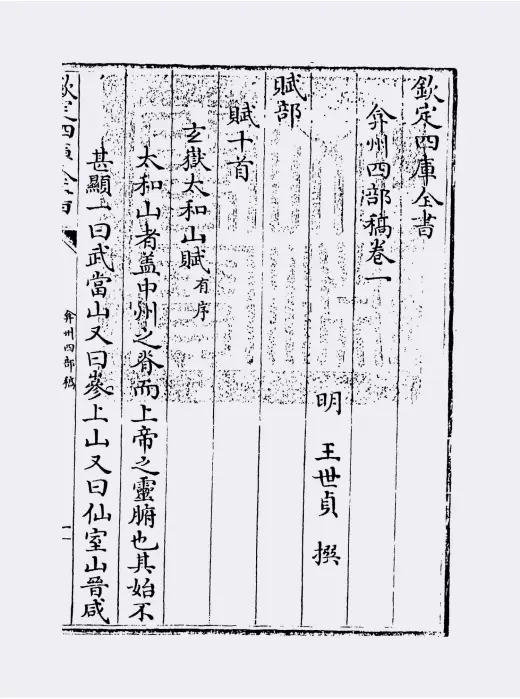 欽定四庫全書
弇州四部稿卷一
明 王世貞 撰
賦部
賦十首
玄嶽太和山賦有序
太和山者葢中州之脊而上帝之靈腑也其始不
甚顯一曰武當山又曰篸上山又曰仙室山晉咸
欽定四庫全書
弇州四部稿
一